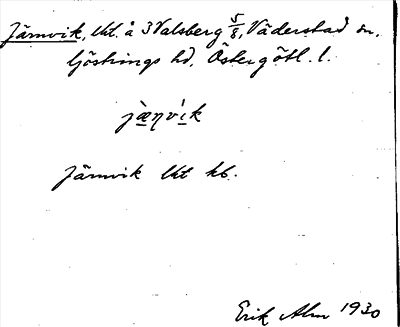 Järnvik, lht. å 3 Valsberg 5/8, Väderstad sn.
Göstrings hd, Östergötl. l.
jæ̀ṇvi̇k
Järnvik lht kb.
Erik Alm 1930